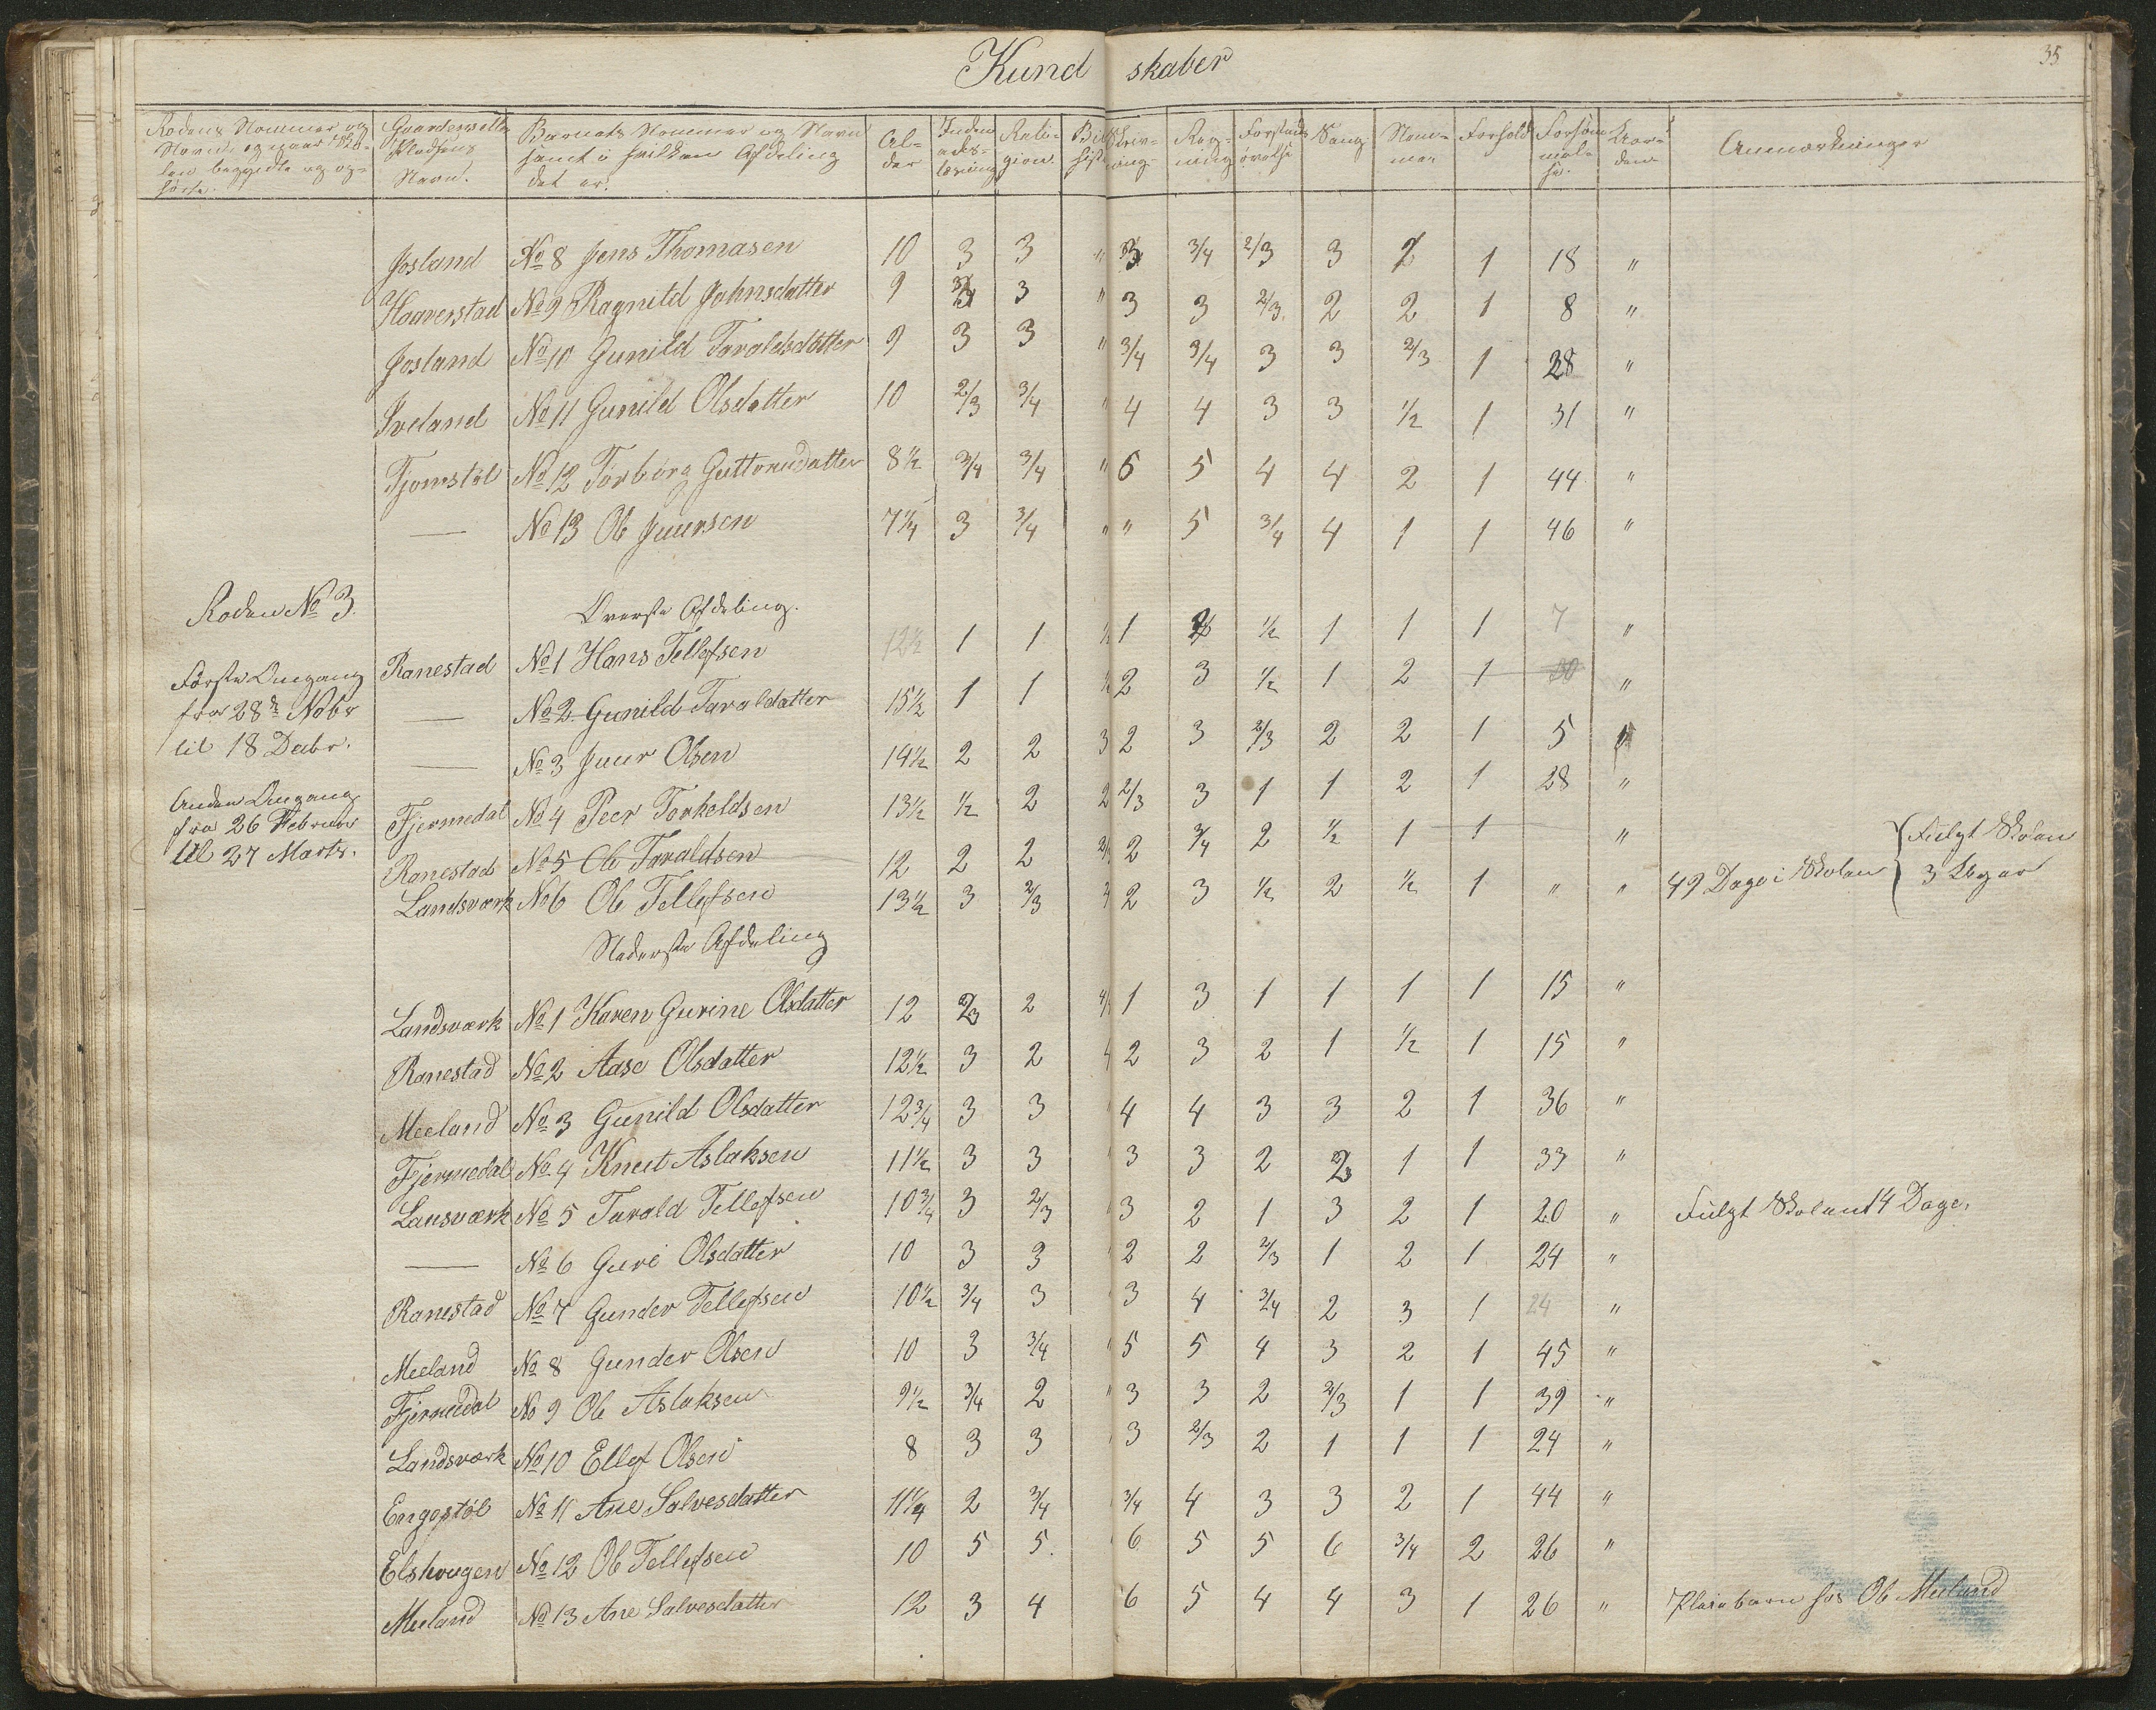 Kundskaber
35
Rodens Nommer og Navn, og naar Skolen begyndte og ophørte. Gaardens eller Pladsens Navn. Barnets Nommer og Navn samt i hvilken Afdeling det er. Alder Religion Skrivning Regning Forstands øvelse Sang Forhold Forsømmelse Anmærkninger
Josland No 8 Jens Thomasen 10 3 3 " 3 3/4 2/3 3 2 1 18 "
Haaverstad No 9 Ragnild Jahnsdatter 9 3 " 3 3 2/3 2 2 1 8 "
Josland No 10 Gunild Taraldsdatter 9 3 3 " 3/4 3/4 3 3 2/3 1 28 "
Iveland No 11 Gunild Olsdatter 10 2/3 3/4 " 4 4 3 3 1/2 1 31 "
Tjomstøl No 12 Torborg Guttormsdatter 8 1/2 3/4 3/4 " 6 5 4 4 2 1 44 "
— No 13 Ole Juursen 7 1/4 3 3/4 " " 5 3/4 4 1 1 46 "
Roden No 3.
Øverste Afdeling.
Ranestad No 1 Hans Tellefsen 12 1/2 1 1 1/2 1 1/2 1 1 1 7 "
— No 2 Gunild Taraldatter 15 1/2 1 1 1/2 2 3 1/2 1 2 1 "
— No 3 Juur Olsen 14 1/2 2 2 3 2 3 2/3 2 2 1 5 "
Fjermedal No 4 Peer Torkeldsen 13 1/2 1/2 2 2 2/3 3 1 1 2 1 28 "
Ranestad No 5 Ole Taraldsen 12 2 2 2/3 2 3/4 2 1/2 1 1 "
Landsværk No 6 Ole Tellefsen 13 1/2 3 2/3 2 3 1/2 2 1/2 1 " " 49 Dage i Skolen { Fulgt Skolen 3 Uger
Første Omgang
fra 28de Nobr
til 18 Decbr.
Anden Omgang
fra 26 Februar
til 27 Marts.
Nederste Afdeling
Landsværk No 1 Karen Gurine Olsdatter 12 2/3 2 1 3 1 1 1 1 15 "
Ranestad No 2 Aase Olsdatter 12 1/2 3 2 2 3 2 1 1/2 1 15 "
Meeland No 3 Gunild Olsdatter 12 3/4 3 3 " 4 4 3 3 2 1 36 "
Fjermedal No 4 Knut Aslaksen 11 1/2 3 3 " 3 3 2 2/3 1 1 33 "
Lansværk No 5 Tarald Tellefsen 10 3/4 3 2/3 3 2 1 3 2 1 20 " Fulgt Skolen 14 Dage.
— No 6 Guri Olsdatter 10 3 3 2 2 2/3 1 2 1 24 "
Ranestad No 7 Gunder Tellefsen 10 1/2 3/4 3 3 4 3/4 2 3 1 24 "
Meeland No 8 Gunder Olsen 10 3 3/4 " 5 5 4 3 2 1 45 "
Fjermedal No 9 Ole Aslaksen 9 1/2 3/4 2 " 3 3 2 2/3 1 1 39 "
Landsværk No 10 Ellef Olsen 8 3 3 3 2/3 2 1 1 1 24 "
Engestøl No 11 Ane Salvesdatter 11 1/4 2 3/4 3/4 4 3 3 2 1 44 "
Elshougen No 12 Ole Tellefsen 10 5 5 6 5 5 6 3/4 2 26 "
Meeland No 13 Ane Salvesdatter 12 3 4 6 5 4 4 3 1 26 " Pleiebarn hos Ole Meeland